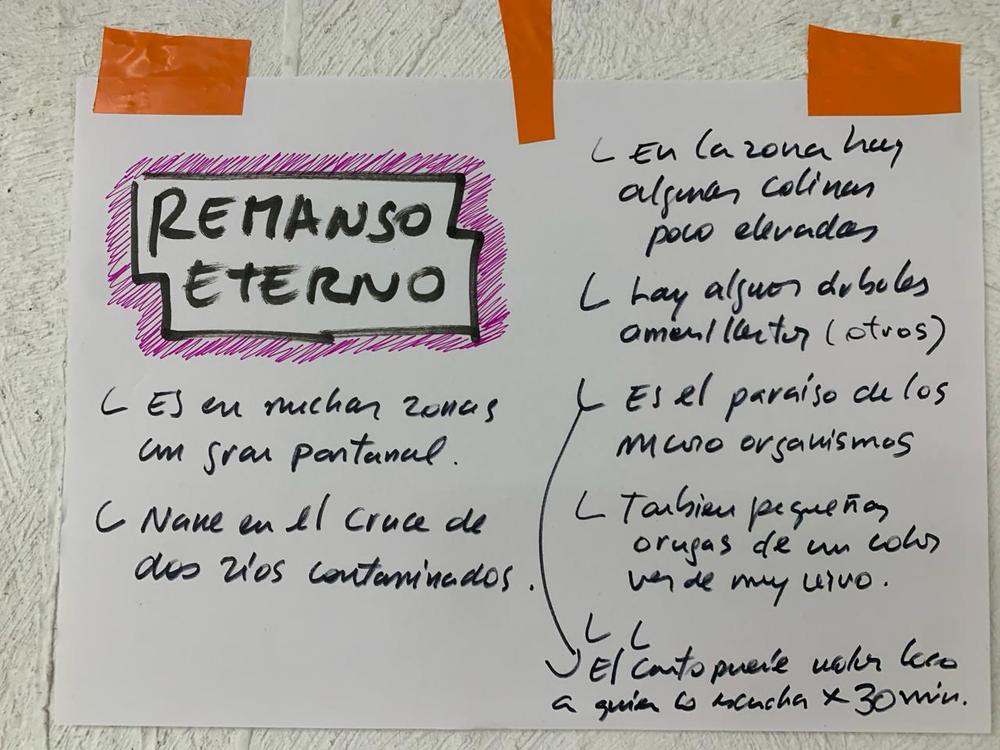 REMANSO
ETERNO
Es en muchas zonas
un gran pantanal.
Nace en el cruce de
dos ríos contaminados.
En la zona hay
algunas colinas
poco elevadas
hay algunos árboles
amarillentos (otros)
Es el paraiso de los
micro organismos
Tambien pequeñas
orugas de un color
verde muy vivo.
El canto puede volver loco
a quien lo escucha x 30 min.